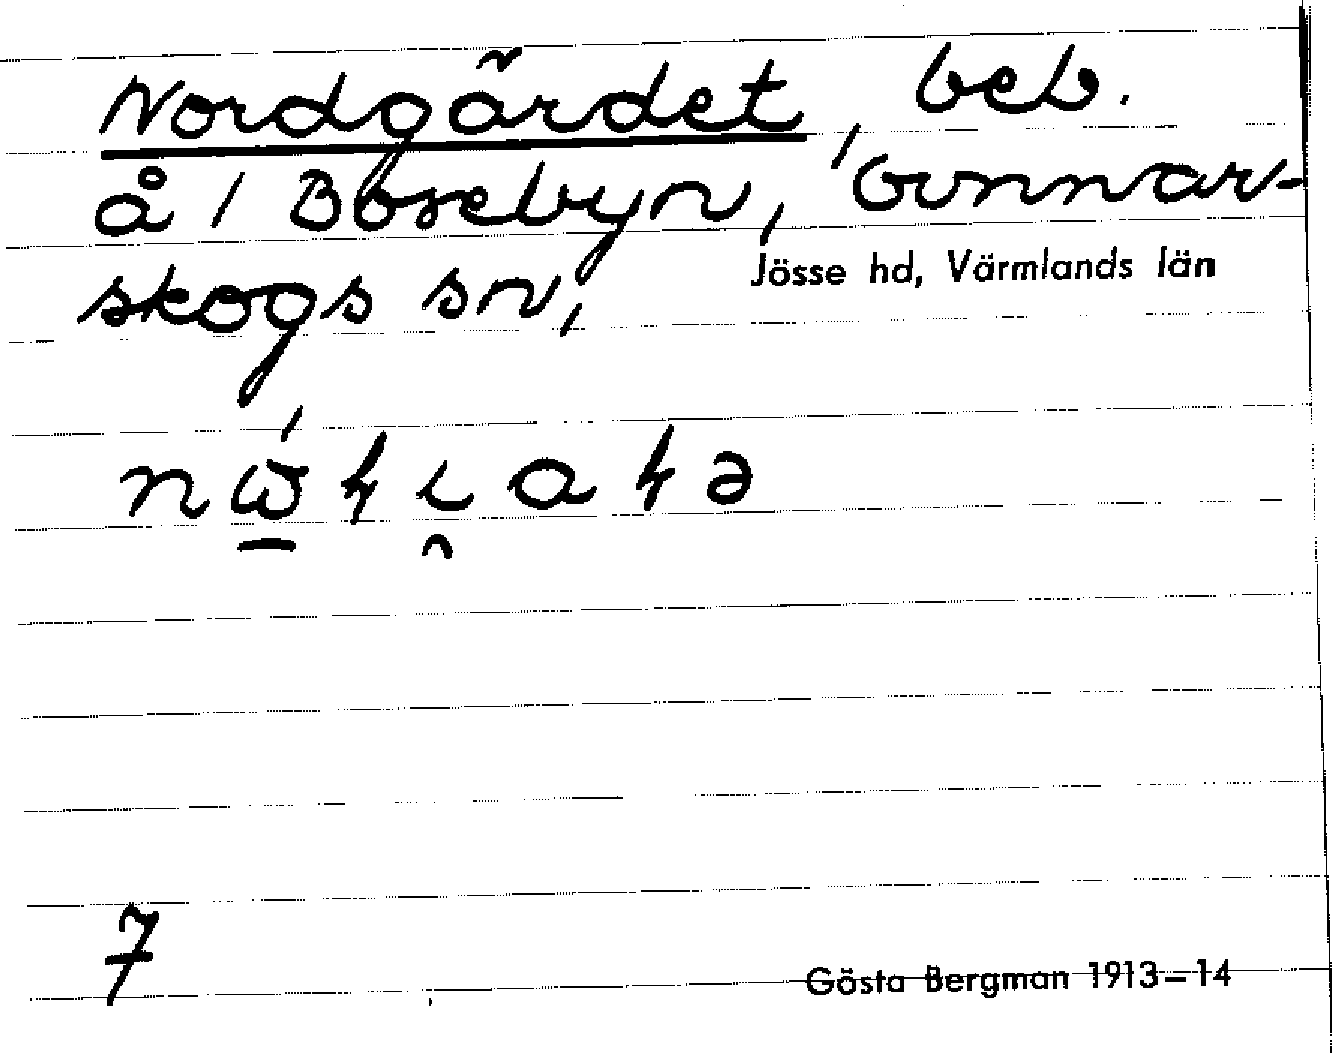 Nordgärdet, beb.
å 1 Bösebyn, Gunnar-
skogs sn,
Jösse hd, Värmlands län
7
Gösta Bergman 1913–14